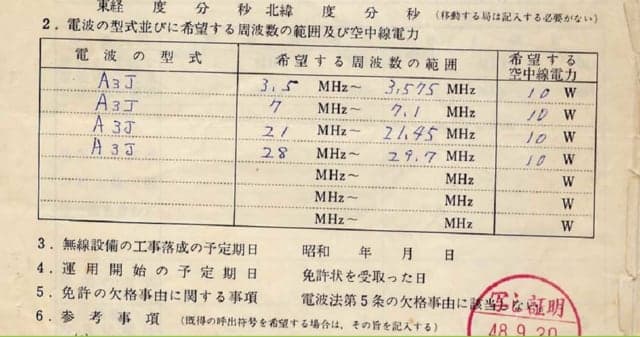 東経 度 分 秒 北緯 度 分 秒 (移動する局は記入する必要がない)
2. 電波の型式並びに希望する周波数の範囲及び空中線電力
電波の型式 希望する周波数の範囲 希望する空中線電力
A3J 3.5 MHz~ 3.575 MHz 10 W
A3J 7 MHz~ 7.1 MHz 10 W
A3J 21 MHz~ 21.45 MHz 10 W
A3J 28 MHz~ 29.7 MHz 10 W
MHz~ MHz W
MHz~ MHz W
MHz~ MHz W
3. 無線設備の工事落成の予定期日 昭和 年 月 日
4. 運用開始の予定期日 免許状を受取った日
5. 免許の欠格事由に関する事項 電波法第5条の欠格事由に該当しない
6. 参考事項 (既得の呼出符号を希望する場合は、その旨を記入する)
証明
48.9.20